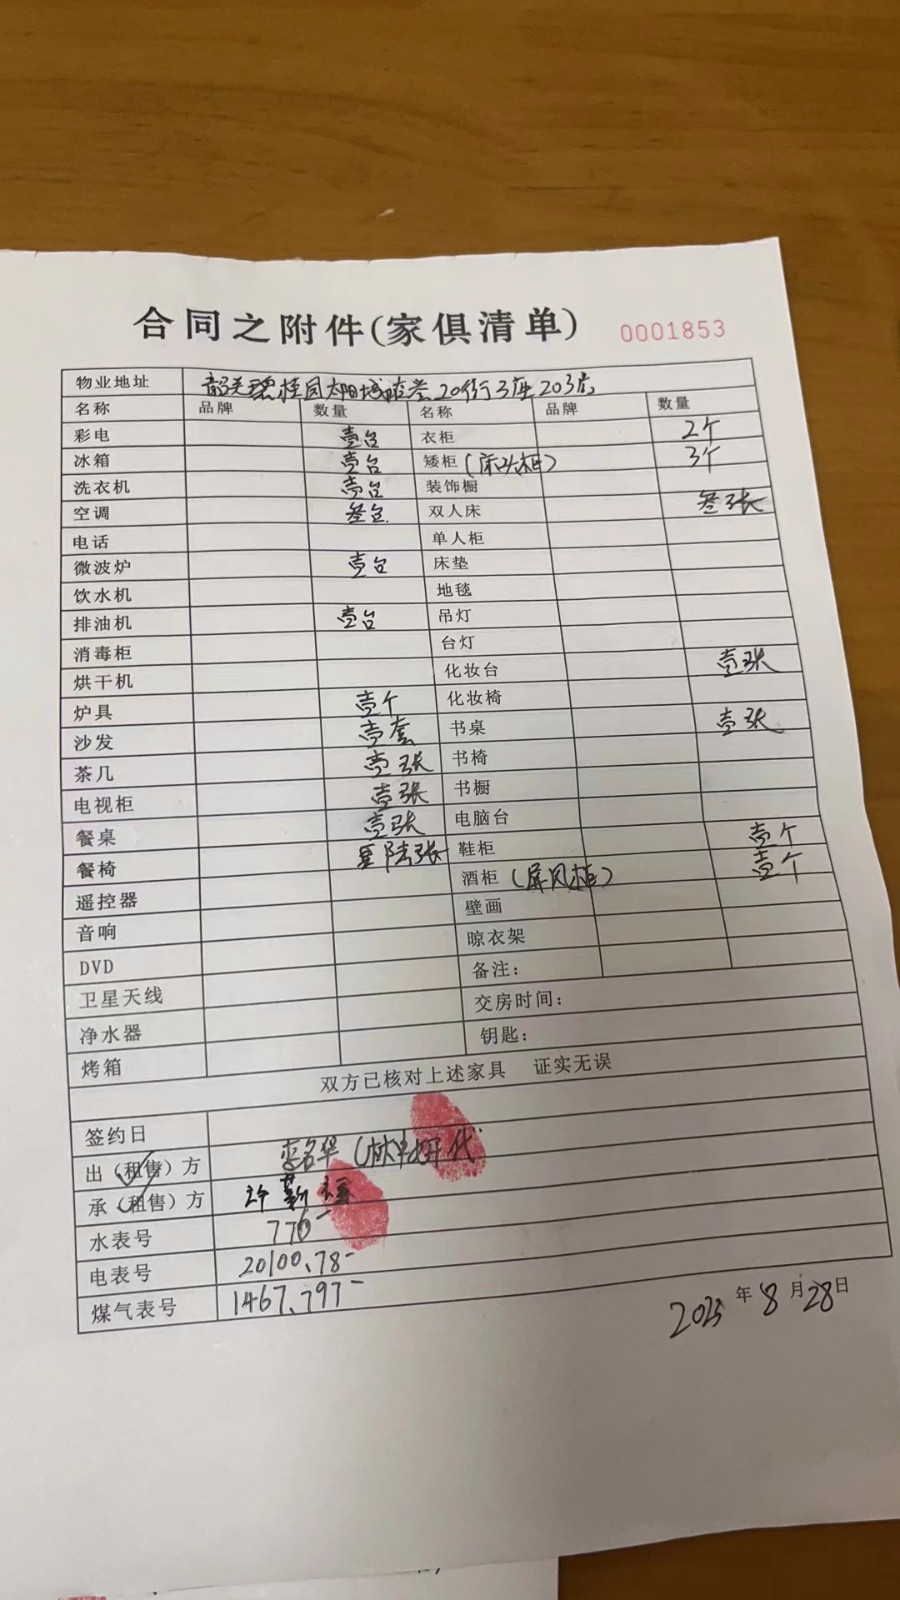 合同之附件(家俱清单) 0001853
物业地址 韶关碧桂园太阳城 20街3座203房
名称 品牌 数量 名称 品牌 数量
彩电 壹台 衣柜 2个
冰箱 壹台 矮柜(床头柜) 3个
洗衣机 壹台 装饰橱
空调 叁台 双人床 叁张
电话 单人柜
微波炉 壹台 床垫
饮水机 地毯
排油机 壹台 吊灯
消毒柜 台灯
烘干机 化妆台 壹张
炉具 壹个 化妆椅
沙发 壹套 书桌 壹张
茶几 壹张 书椅
电视柜 壹张 书橱
餐桌 壹张 电脑台
餐椅 陆张 鞋柜 壹个
遥控器 酒柜(屏风柜) 壹个
音响 壁画
DVD 晾衣架
卫星天线 备注:
净水器 交房时间:
烤箱 钥匙:
双方已核对上述家具 证实无误
签约日
出(租售)方 李名华 代
承(租售)方 许
水表号 776
电表号 20100.78-
煤气表号 1467.797-
2025年8月28日